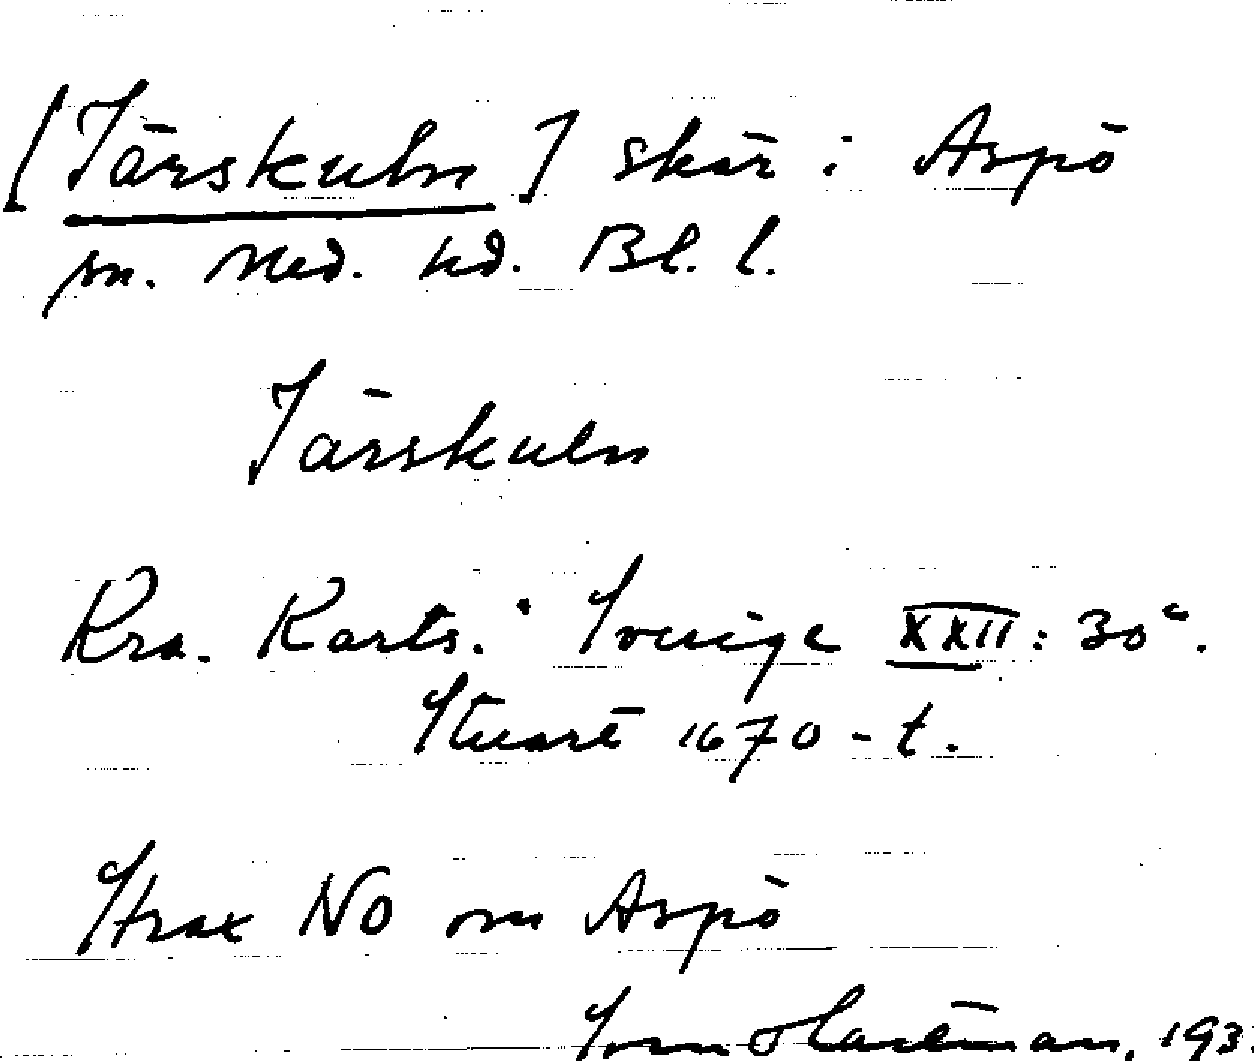 [Järskuln] skär i Aspö
sn. Med. hd. Bl. l.
Järskuln
Kra. Karts. Sverige XXII: 30c.
Stuart 1670-t.
Strax NO om Aspö
Sven Hartman, 193